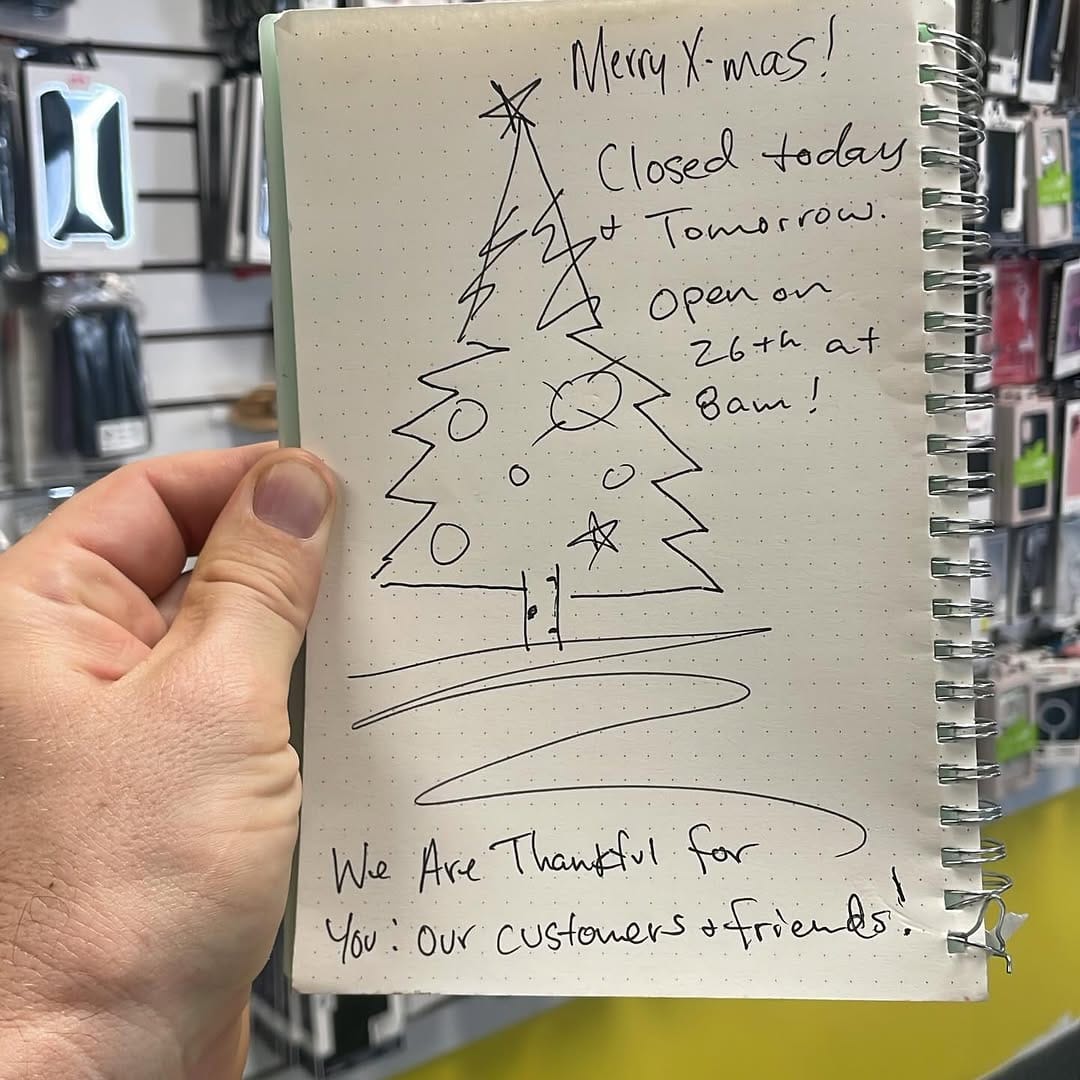 Merry X-mas!
Closed today
+ Tomorrow.
Open on
26th at
8am!
We Are Thankful for
You: our customers + friends!